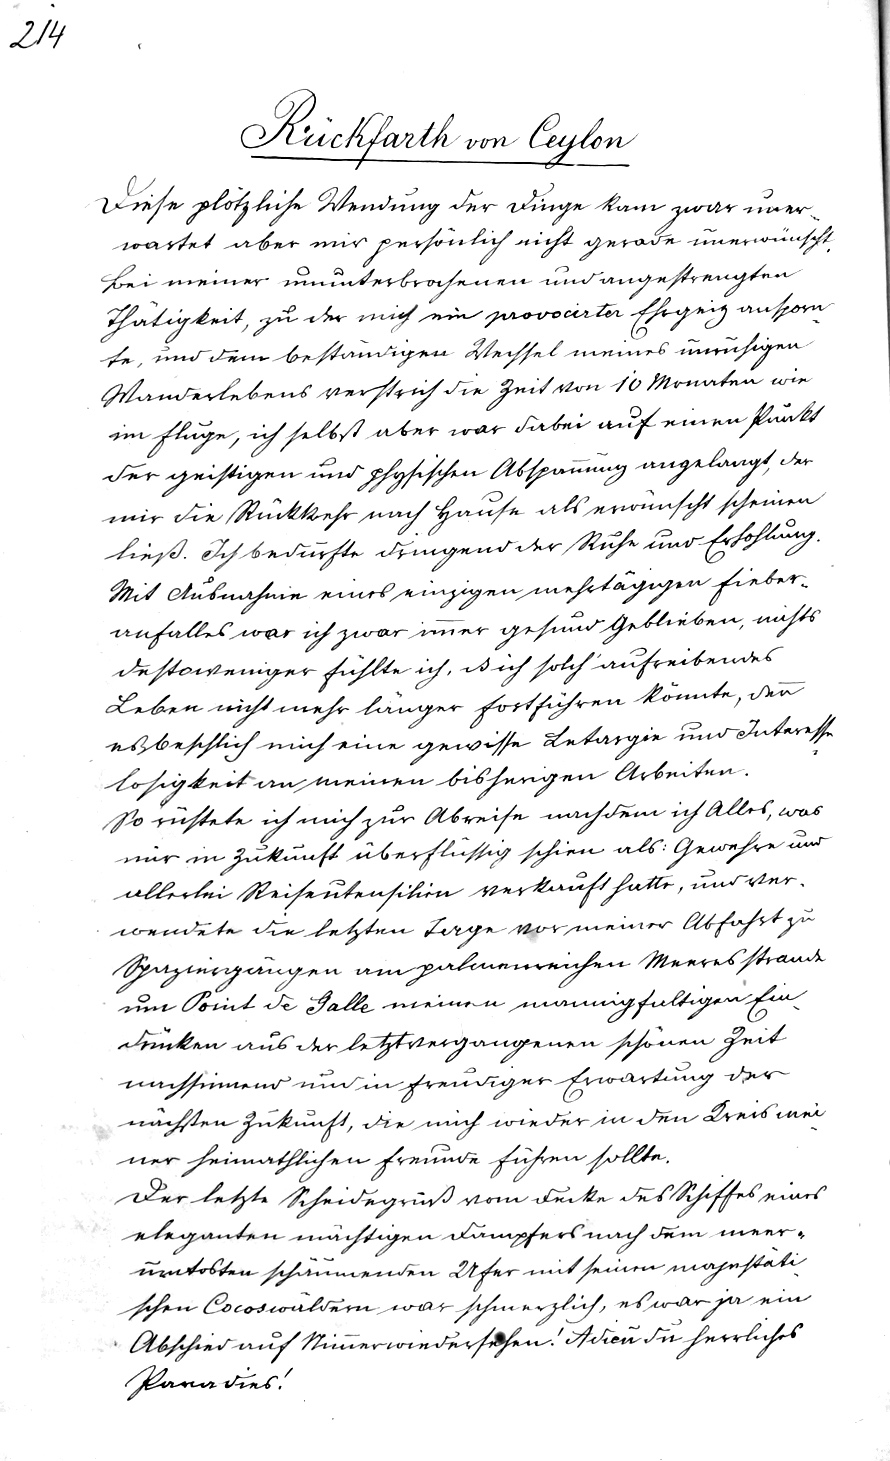 214
Rückfarth von Ceylon
Diese plötzliche Wendung der Dinge kam zwar uner-
wartet aber mir persönlich nicht gerade unerwünscht.
Bei meiner ununterbrochenen und angestrengten
Thätigkeit, zu der mich ein provocirter Ehrgeiz ansporn-
te, und dem beständigen Wechsel meines unruhigen
Wanderlebens verstrich die Zeit von 10 Monaten wie
im Fluge, ich selbst aber war dabei auf einen Punkt
der geistigen und physischen Abspan̅ung angelangt, der
mir die Rückkehr nach Hause als erwünscht scheinen
ließ. Ich bedurfte dringend der Ruhe und Erhohlung.
Mit Ausnahme eines einzigen mehrtägigen Fieber-
anfalles war ich zwar im̅er gesund geblieben, nichts
destoweniger fühlte ich, ß ich solch' aufreibendes
Leben nicht mehr länger fortführen könnte, den̅
es beschlich mich eine gewisse Letargie und Interesse-
losigkeit an meinen bisherigen Arbeiten.
So rüstete ich mich zur Abreise nachdem ich Alles, was
mir in Zukunft überflüssig schien als: Gewehre und
allerlei Reiseutensilien verkauft hatte, und ver-
wendete die letzten Tage vor meiner Abfahrt zu
Spaziergängen am palmenreichen Meeresstrande
um Point de Galle meinen mannigfaltigen Ein-
drücken aus der letztvergangenen schönen Zeit
nachsinnend und in freudiger Erwartung der
nächsten Zukunft, die mich wieder in den Kreis mei-
ner heimathlichen Freunde führen sollte.
Der letzte Scheidegruß vom Decke des Schiffes eines
eleganten mächtigen Dampfers nach dem meer-
umtosten schäumenden Ufer mit seinen majestäti-
schen Cocoswäldern war schmerzlich, es war ja ein
Abschied auf Nim̅erwiedersehen! Adieu du herrliches
Paradies!